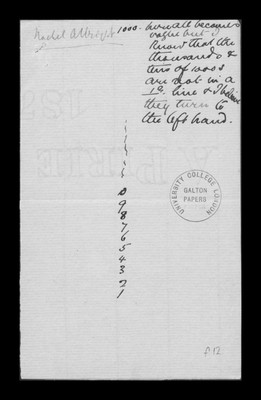 Rachel Albright
1000 - turn all becomes
vague but I
know that the
thousands &
tens of 1000s
are not in a
1st line & I believe
they turn to
the left hand.
10
9
8
7
6
5
4
3
2
1
UNIVERSITY COLLEGE LONDON
GALTON
PAPERS
f12